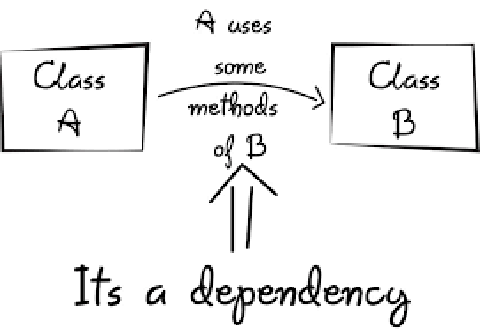 Class
A
A uses
some
methods
of B
Class
B
Its a dependency